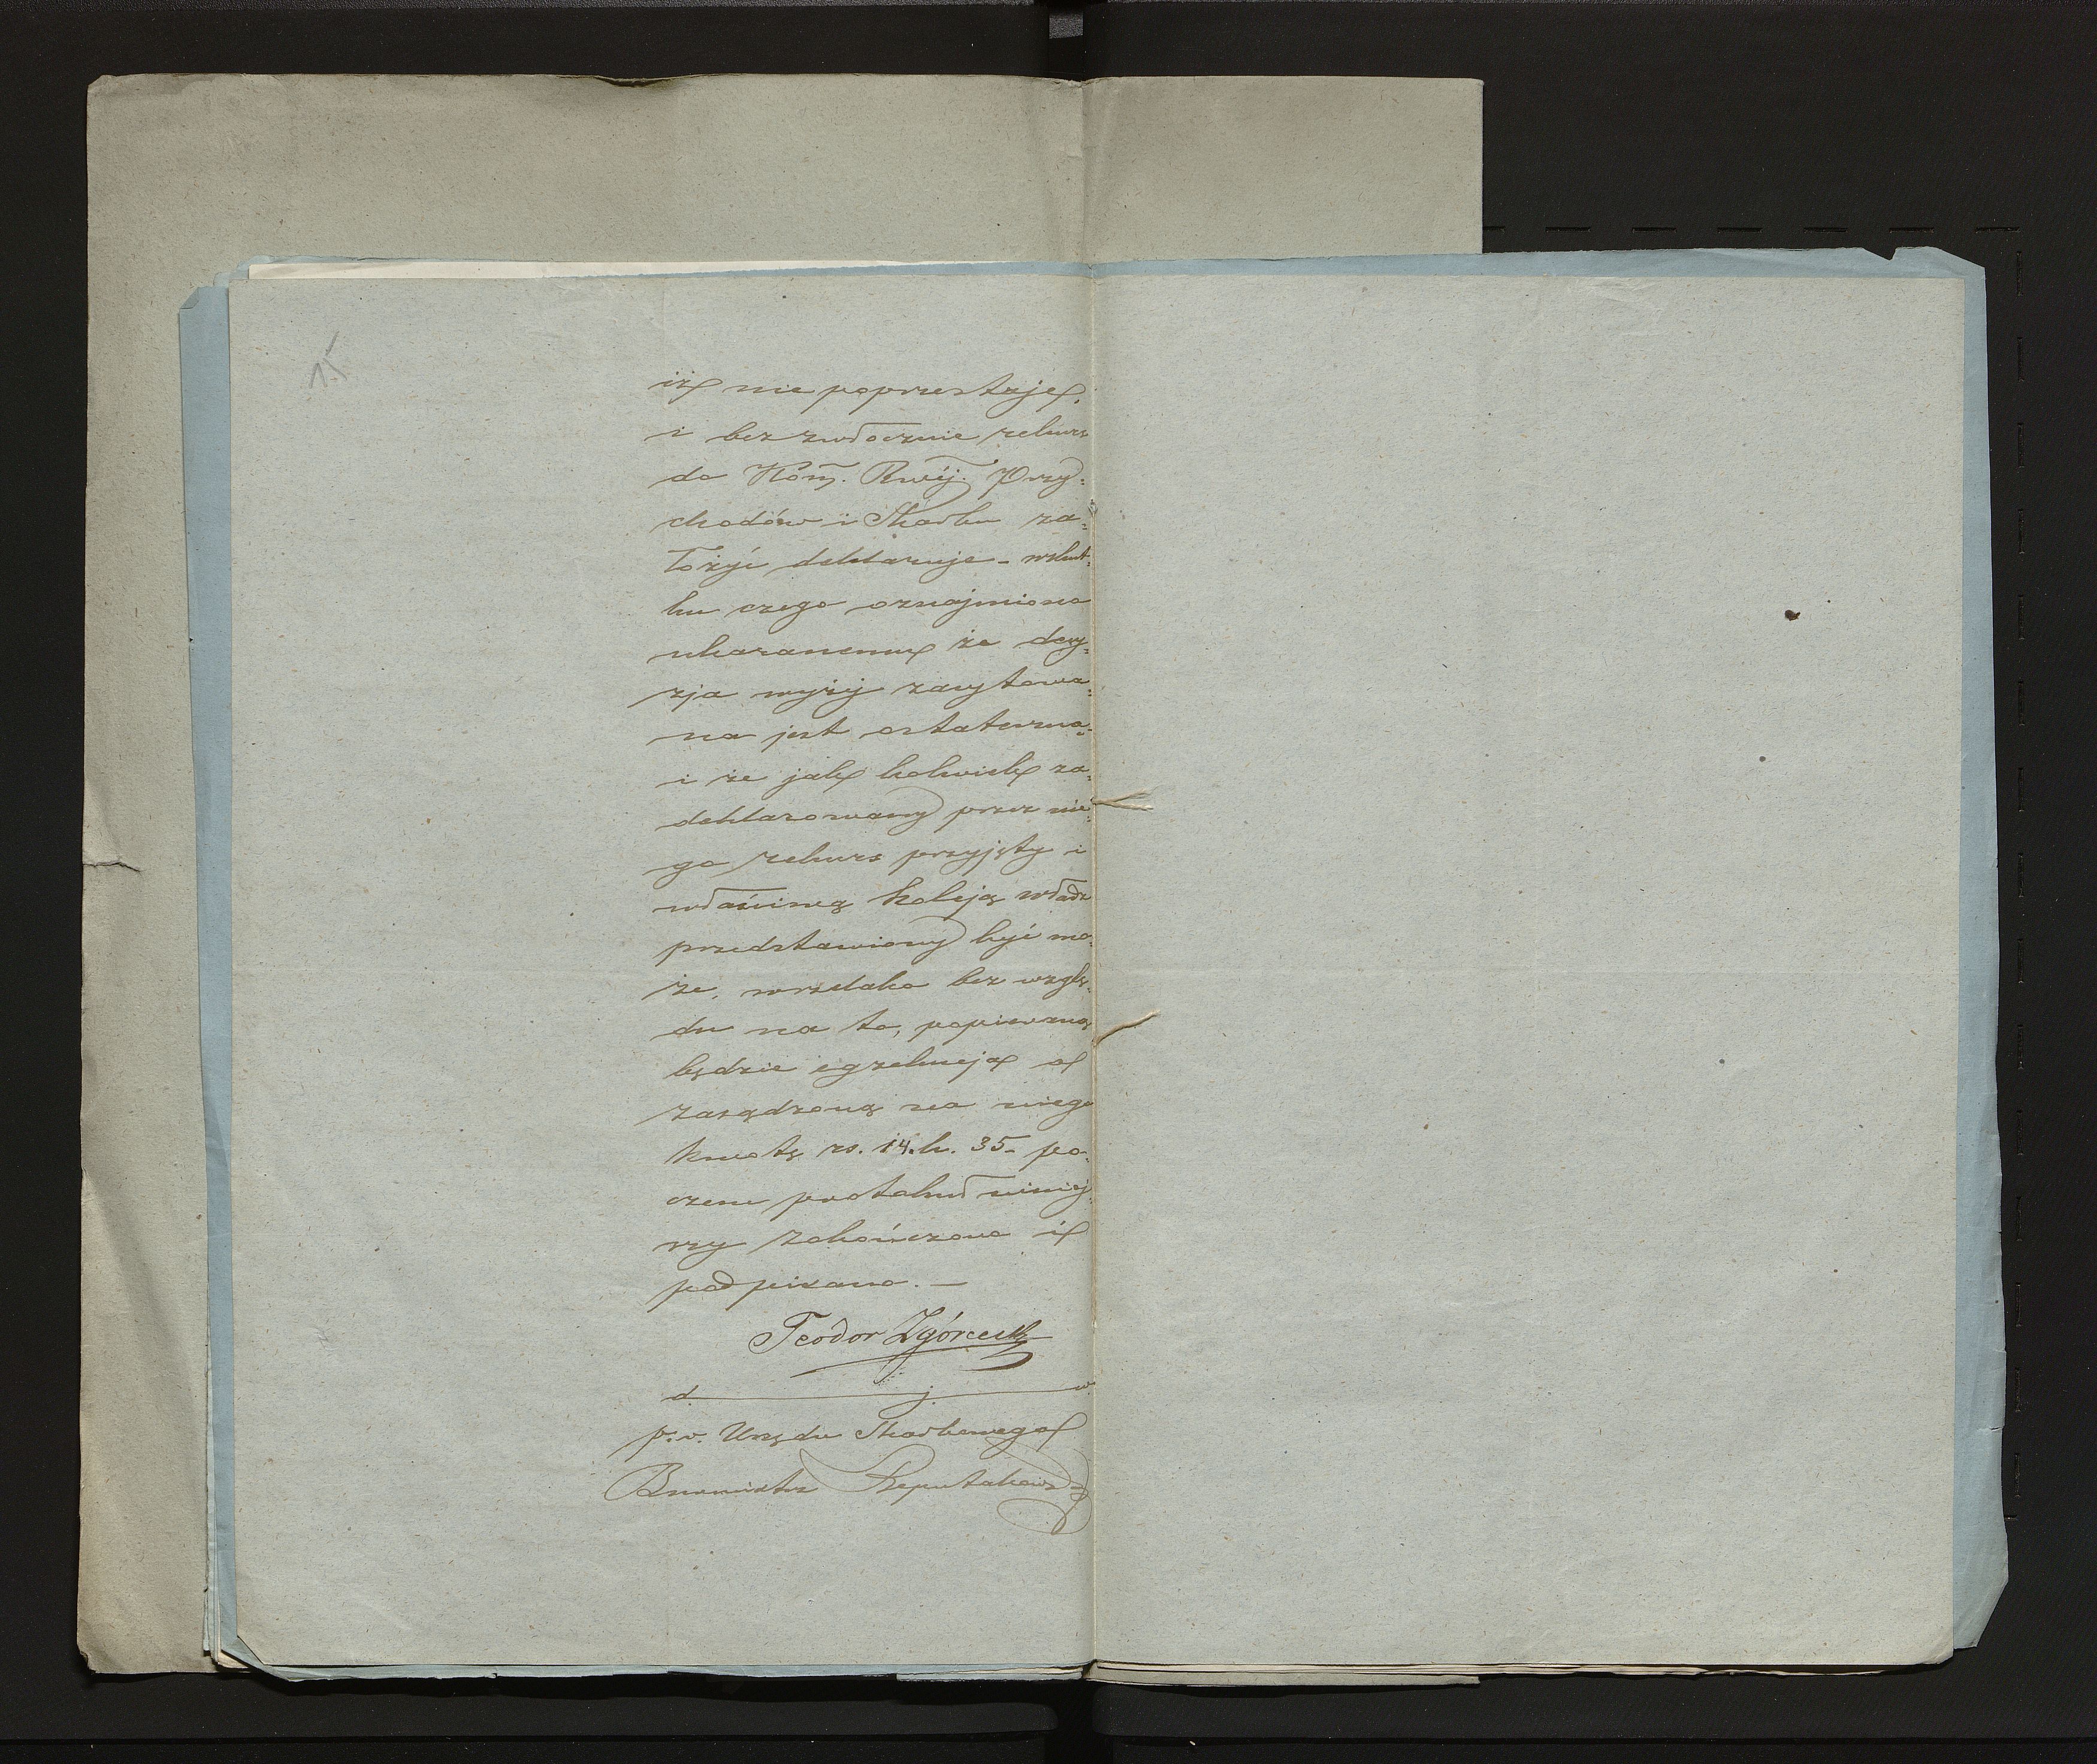 15
iż nie poprzestaje,
i bezzwłocznie rekurs
do Kom. Rwéj. Przy=
chodów i Skarbu za=
łożyć deklaruje – wskut=
ku czego oznajmiono
ukaranemu że decy=
zja wyżéj zacytowa=
na jest ostateczną
i że jak kolwiek za=
deklarowany przez nie=
go rekurs przyjęty i
właściwą koleją władz
przedstawiony być mo=
że, wszelako bez wzglę=
du na to, popieraną
będzie egzekucja o
zasądzoną na niego
kwotę rs. 14. k. 35 – po=
czem protokuł niniej=
szy zakończono i
podpisano. –
Teodor Zgórecki
d. j. w.
p. o. Urzędu Skarbowego
Burmistrz